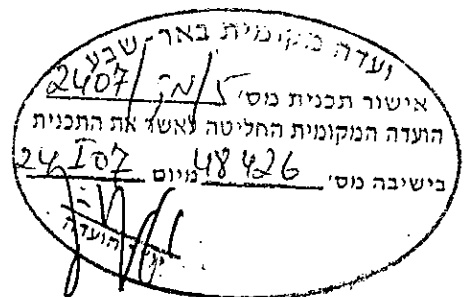 ועדה מקומית באר-שבע
אישור תכנית מס' 5/מק/2407
הועדה המקומית החליטה לאשר את התכנית
בישיבה מס' 48426 מיום 24 I 07
הועדה